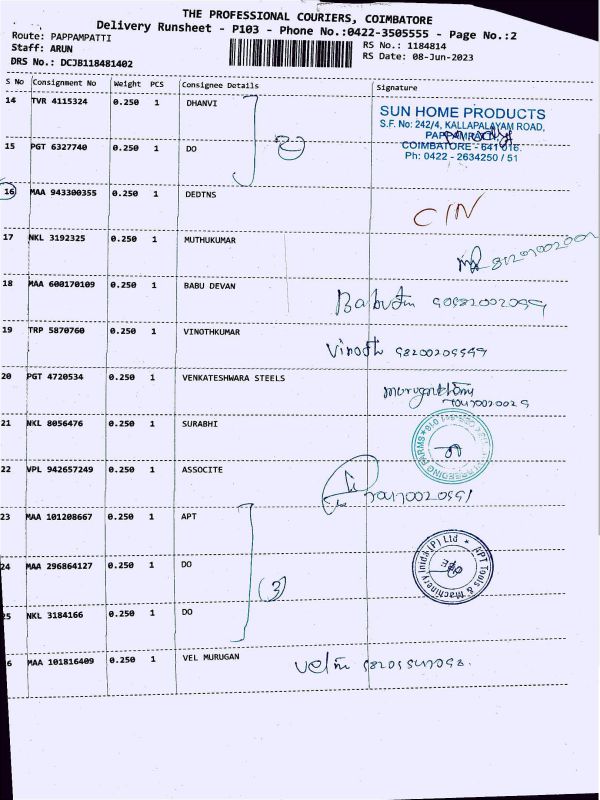 THE PROFESSIONAL COURIERS, COIMBATORE
Delivery Runsheet - P103 - Phone No.:0422-3505555 - Page No.:2
Route: PAPPAMPATTI
RS No.: 1184814
Staff: ARUN
RS Date: 08-Jun-2023
DRS No.: DCJB118481402
S No Consignment No Weight PCS Consignee Details Signature
14 TVR 4115324 0.250 1 DHANVI
SUN HOME PRODUCTS
S.F. No: 242/4, KALLAPALAYAM ROAD,
COIMBATORE - 641 016.
Ph: 0422 - 2634250 / 51
15 PGT 6327740 0.250 1 DO
16 MAA 943300355 0.250 1 DEDTNS
C/N
17 NKL 3192325 0.250 1 MUTHUKUMAR
18 MAA 600170109 0.250 1 BABU DEVAN
19 TRP 5870760 0.250 1 VINOTHKUMAR
Vinoth
20 PGT 4720534 0.250 1 VENKATESHWARA STEELS
21 NKL 8056476 0.250 1 SURABHI
22 VPL 942657249 0.250 1 ASSOCITE
23 MAA 101208667 0.250 1 APT
24 MAA 296864127 0.250 1 DO
(3)
APT Tools & Machinery India (P) Ltd
25 NKL 3184166 0.250 1 DO
6 MAA 101816409 0.250 1 VEL MURUGAN